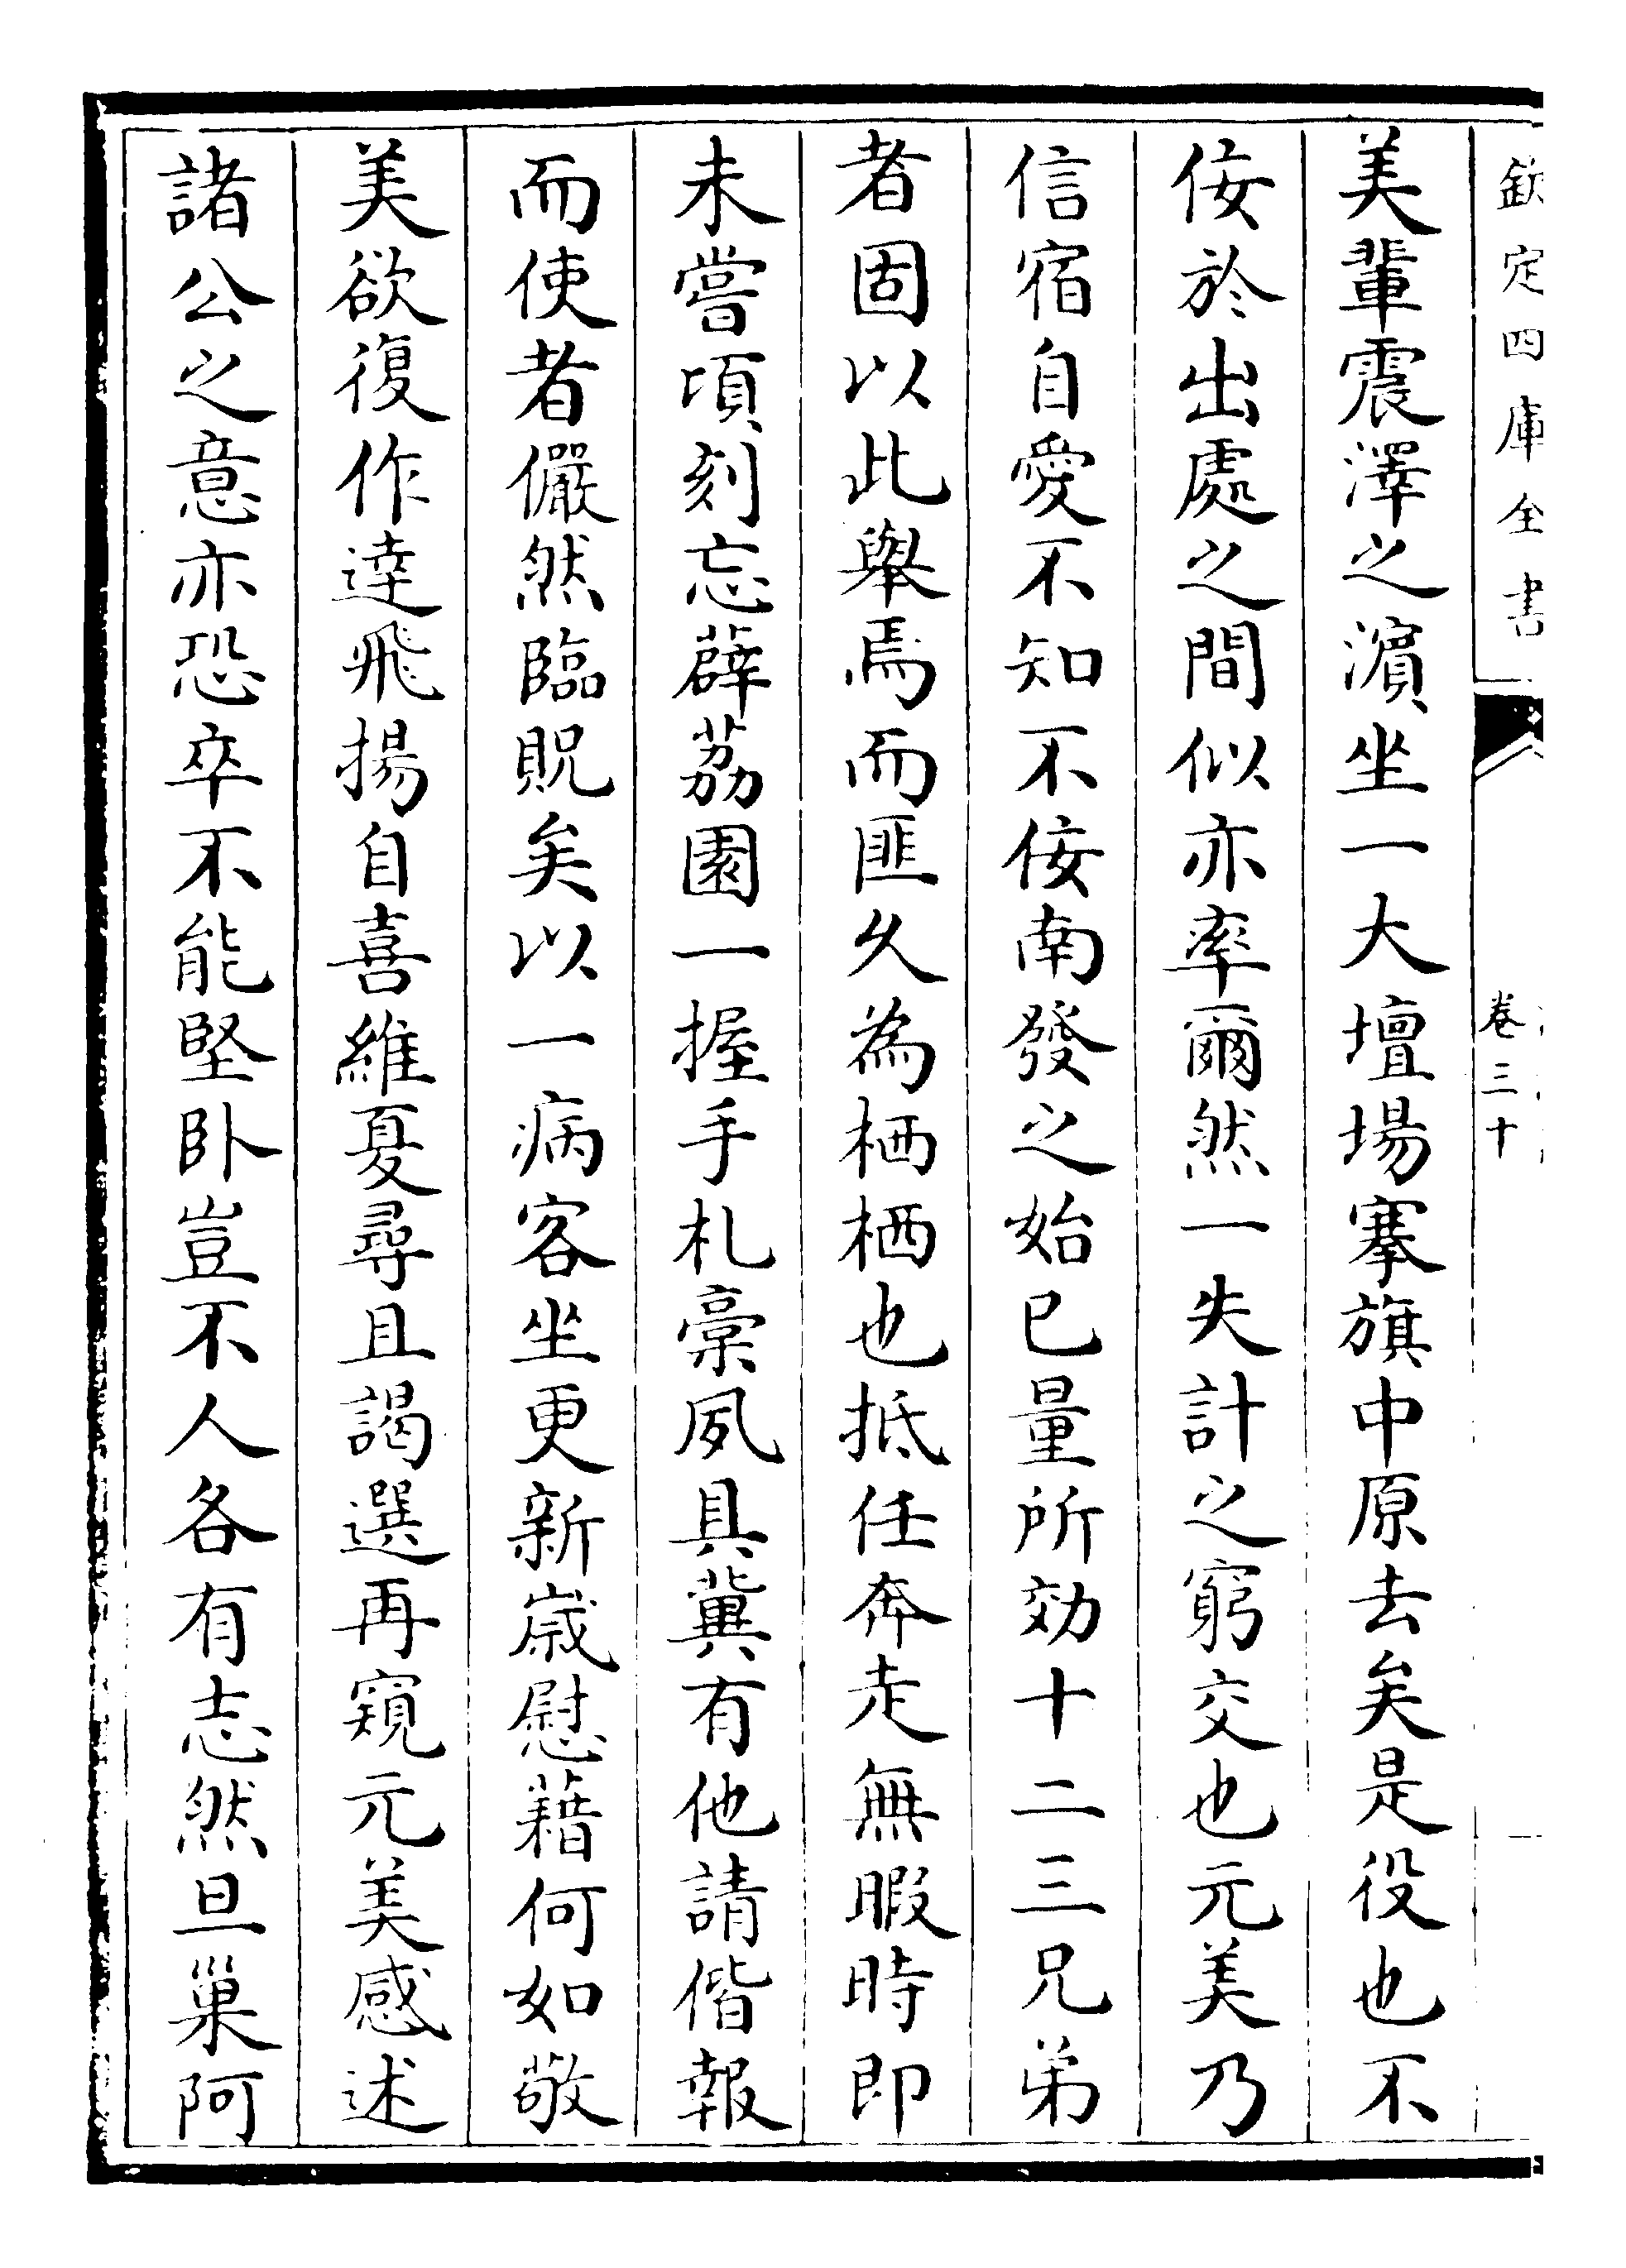 欽定四庫全書
卷三十
美輩震澤之濵坐一大壇場搴旗中原去矣是役也不
佞於出處之間似亦率爾然一失計之窮交也元美乃
信宿自愛不知不佞南發之始已量所効十二三兄弟
者固以此舉焉而匪久為栖栖也抵任奔走無暇時即
未嘗頃刻忘薜荔園一握手札稾夙具冀有他請偕報
而使者儼然臨貺矣以一病客坐更新嵗慰藉何如敬
美欲復作逹飛揚自喜維夏尋且謁選再窺元美感述
諸公之意亦恐卒不能堅卧豈不人各有志然旦巢阿